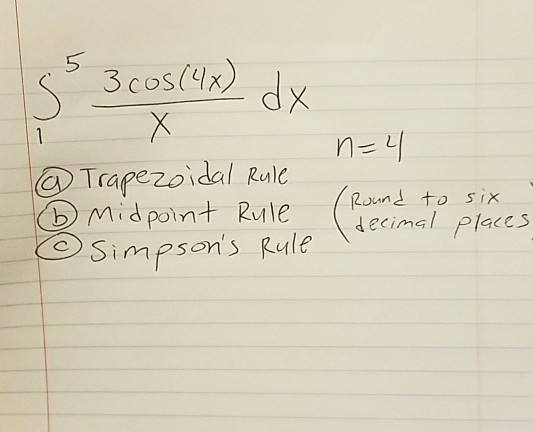 ∫₁⁵ 3cos(4x)/x dx
n=4
(a) Trapezoidal Rule
(b) Midpoint Rule
(c) Simpson's Rule
(Round to six
decimal places